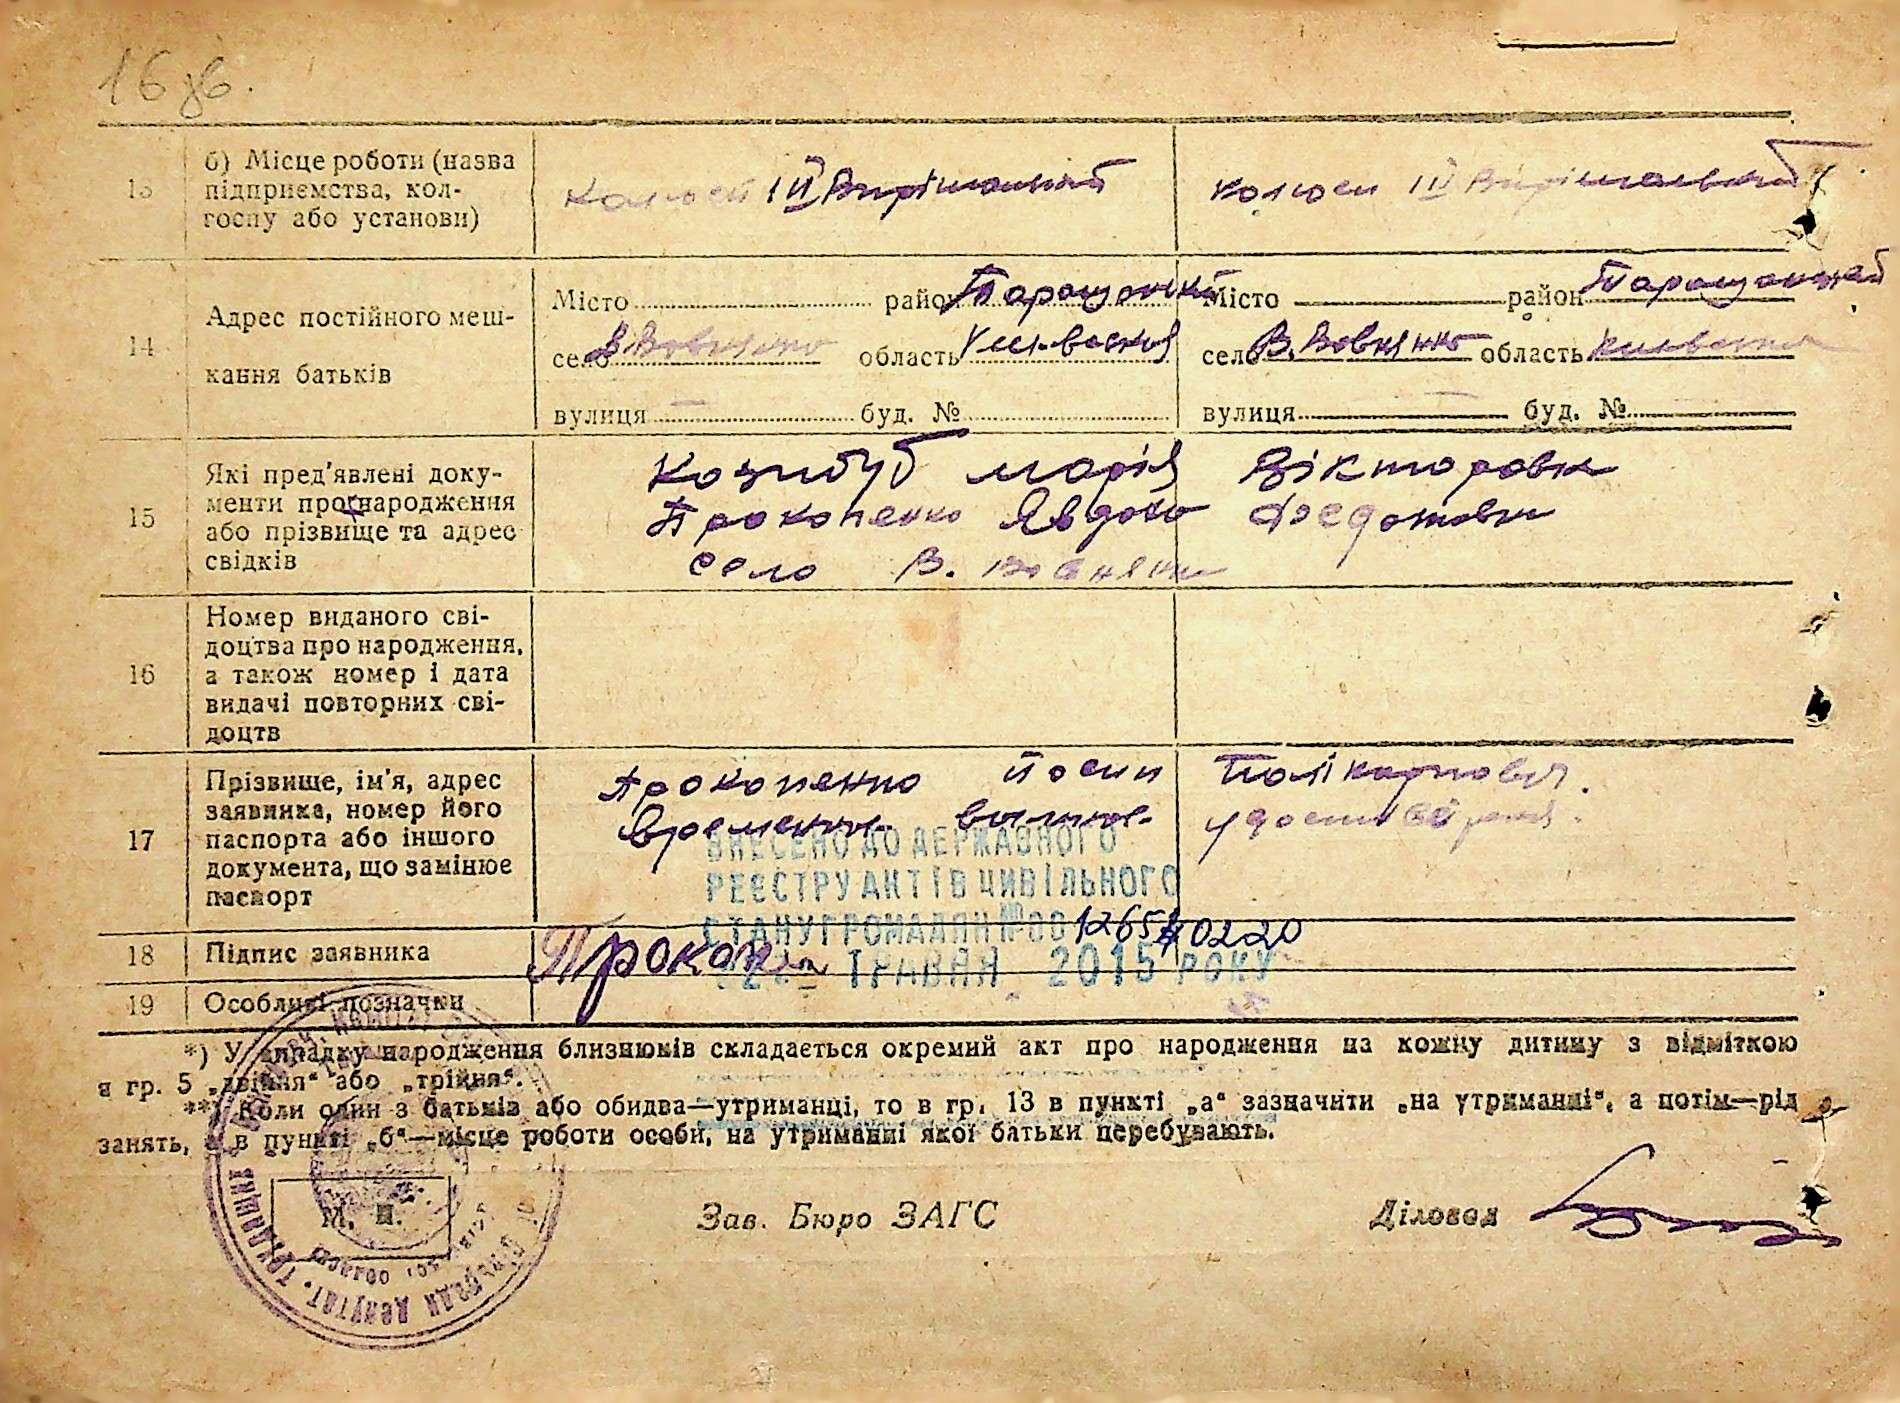 16 зв.
13 б) Місце роботи (назва
підприємства, кол-
госпу або установи)
14 Адрес постійного меш-
кання батьків
Місто район Таращанський Місто район Таращанський
село В. Вовнянка область село В. Вовнянка область Київська
вулиця — буд. № вулиця — буд. №
15 Які пред'явлені доку-
менти про народження
або прізвище та адрес
свідків
Козибуб Марія Вікторовна
Прокопенко Явдоха Федотовна
село В. Вовнянка
16 Номер виданого сві-
доцтва про народження,
а також номер і дата
видачі повторних сві-
доцтв
17 Прізвище, ім'я, адрес
заявника, номер його
паспорта або іншого
документа, що замінює
паспорт
Прокопенко Йосип Полікарпович
ВНЕСЕНО ДО ДЕРЖАВНОГО
РЕЄСТРУ АКТІВ ЦИВІЛЬНОГО
СТАНУ ГРОМАДЯН № 00
18 Підпис заявника
ТРАВНЯ 2015 РОКУ
19 Особливі позначки
*) У випадку народження близнюків складається окремий акт про народження на кожну дитину з відміткою
в гр. 5 „двійня“ або „трійня“.
**) Коли один з батьків або обидва—утриманці, то в гр. 13 в пункті „а“ зазначити „на утриманні“, а потім—рід
занять, а в пункті „б“—місце роботи особи, на утриманні якої батьки перебувають.
М. П. Зав. Бюро ЗАГС Діловод